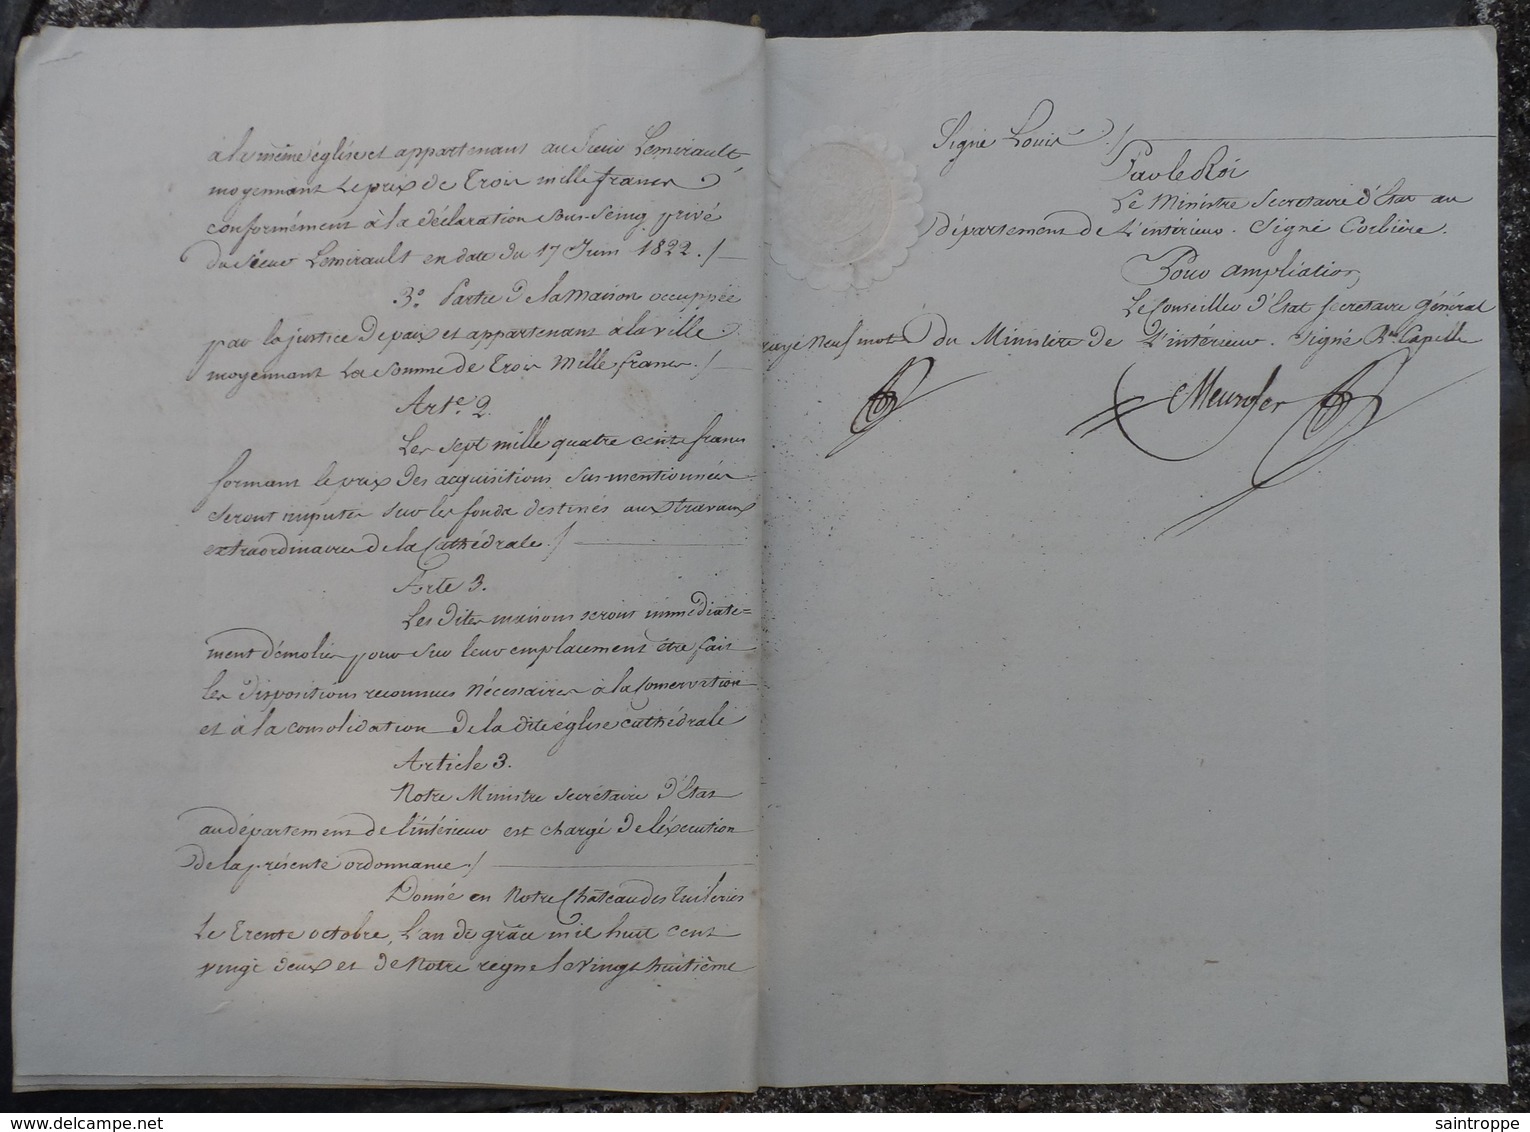 à la même église et appartenant au Sieur Lemirault,
moyennant le prix de Trois mille francs
conformément à la déclaration sous-seing privé
du Sieur Lemirault en date du 17 Juin 1822./.
3º. Partie de la maison occuppée
par la justice de paix et appartenant à la ville
moyennant la somme de Trois Mille francs./.
Arte. 2.
Les sept mille quatre cent francs
formant le prix des acquisitions sus-mentionnées
seront imputés sur les fonds destinés aux travaux
extraordinaires de la Cathédrale./.
Arte 3.
Les dites maisons seront immédiate=
ment démolies pour sur leur emplacement être fait
les dispositions reconnues nécessaires à la conservation
et à la consolidation de la dite église cathédrale
Article 3.
Notre Ministre Secrétaire d'Etat
au département de l'intérieur est chargé de l'éxecution
de la présente ordonnance./.
Donné en Notre Château des Tuileries
Le Trente octobre, l'an de grâce mil huit cent
vingt deux et de Notre regne le vingt huitième
Signé Louis./.
Par le Roi
Le Ministre Secretaire d'Etat au
département de l'intérieur. Signé Corbière.
Pour ampliation,
Le Conseiller d'Etat Secretaire Général
rayé neuf mots du Ministère de l'intérieur. Signé Bon Capelle
delcampe.net
saintroppe